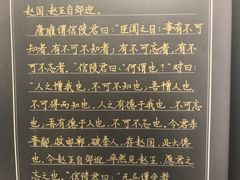 赵国,赵王自郊迎。
唐雎谓信陵君曰:“臣闻之曰:事有不可
知者,有不可不知者,有不可忘者,有不
可不忘者。”信陵君曰:“何谓也?”对曰:
“人之憎我也,不可不知也,吾憎人也,不
可得而知也,人之有德于我也,不可忘
也,吾有德于人也,不可不忘也。今君杀
晋鄙,救邯郸,破秦人,存赵国,此大德
也,今赵王自郊迎,卒然见赵王,愿君之
忘之也。”信陵君曰:“无忌谨受教